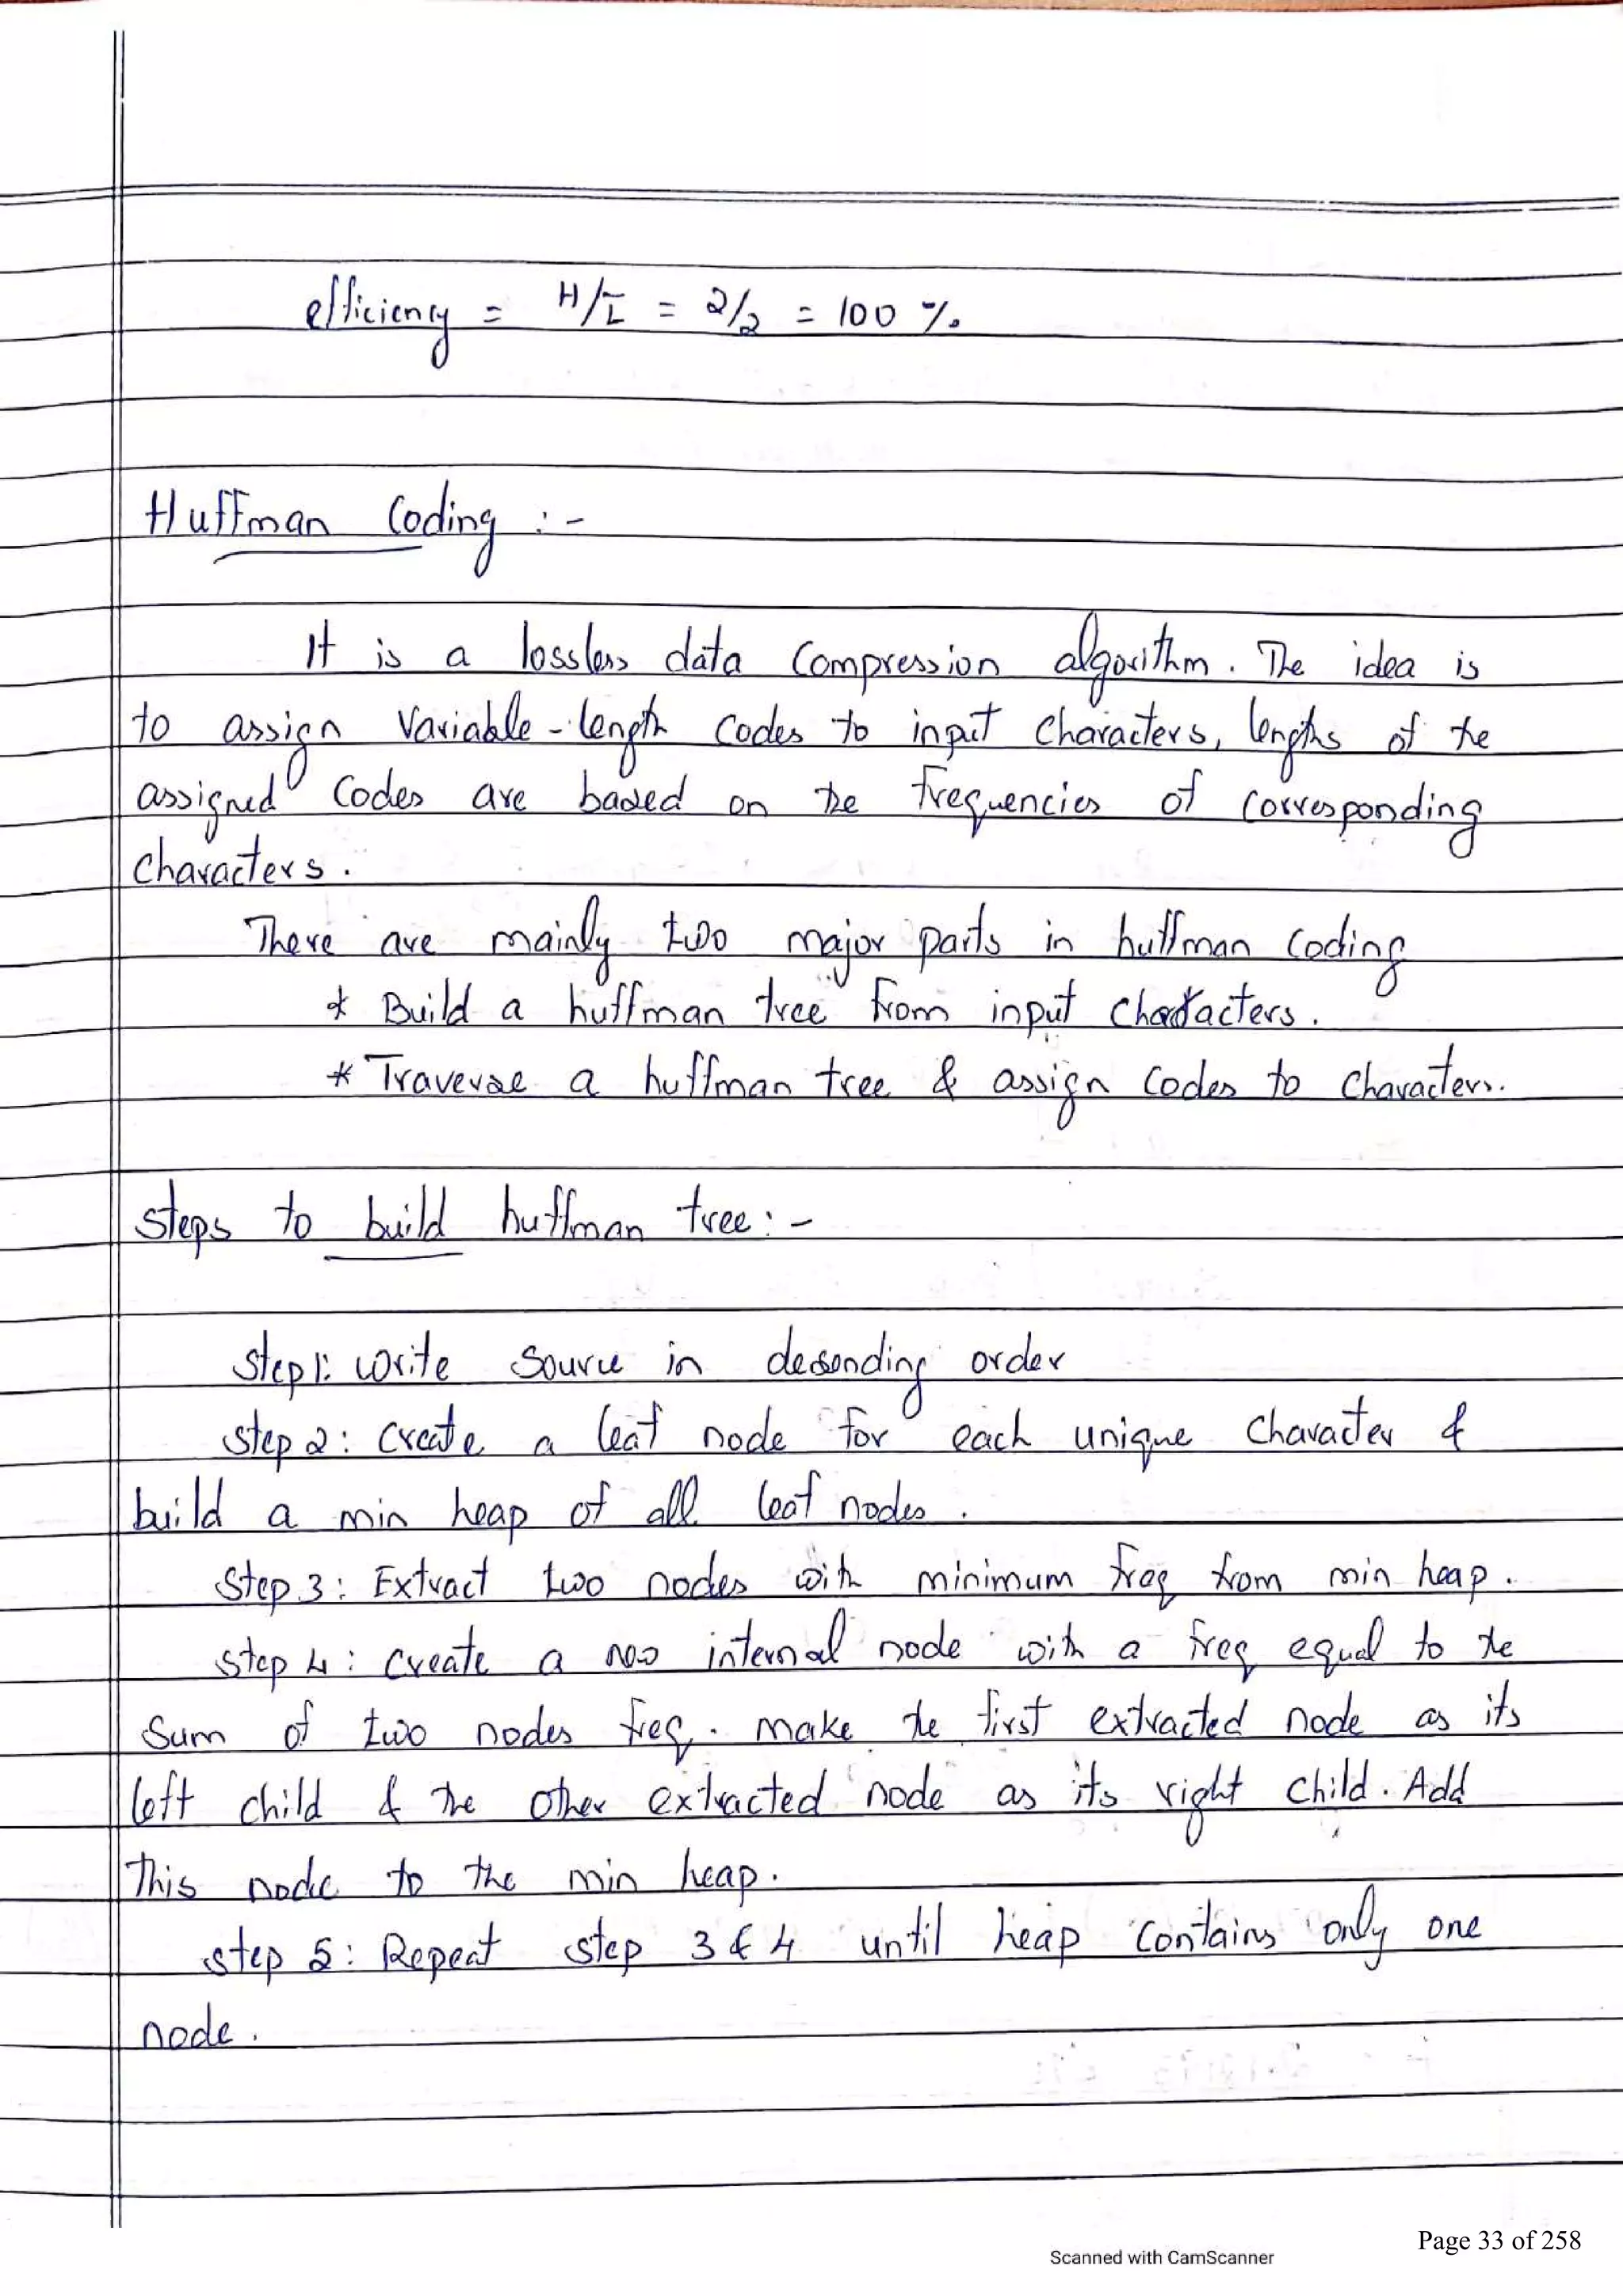 efficiency = H/L̄ = 2/2 = 100 %
Huffman Coding :-
It is a lossless data Compression algorithm. The idea is
to assign Variable-length Codes to input Characters, lengths of the
assigned Codes are based on the frequencies of Corresponding
Characters.
There are mainly two major parts in huffman Coding
* Build a huffman tree from input Characters.
* Traverse a huffman tree & assign Codes to Characters.
Steps to build huffman tree:-
Step1: Write Source in desending order
Step 2: Create a leaf node for each unique Character &
build a min heap of all leaf nodes.
Step 3: Extract two nodes with minimum freq from min heap.
Step 4: Create a new internal node with a freq equal to the
Sum of two nodes freq. make the first extracted node as its
left child & the other extracted node as its right child. Add
This node to the min heap.
Step 5: Repeat step 3 & 4 until heap Contains only one
node.
Page 33 of 258
Scanned with CamScanner